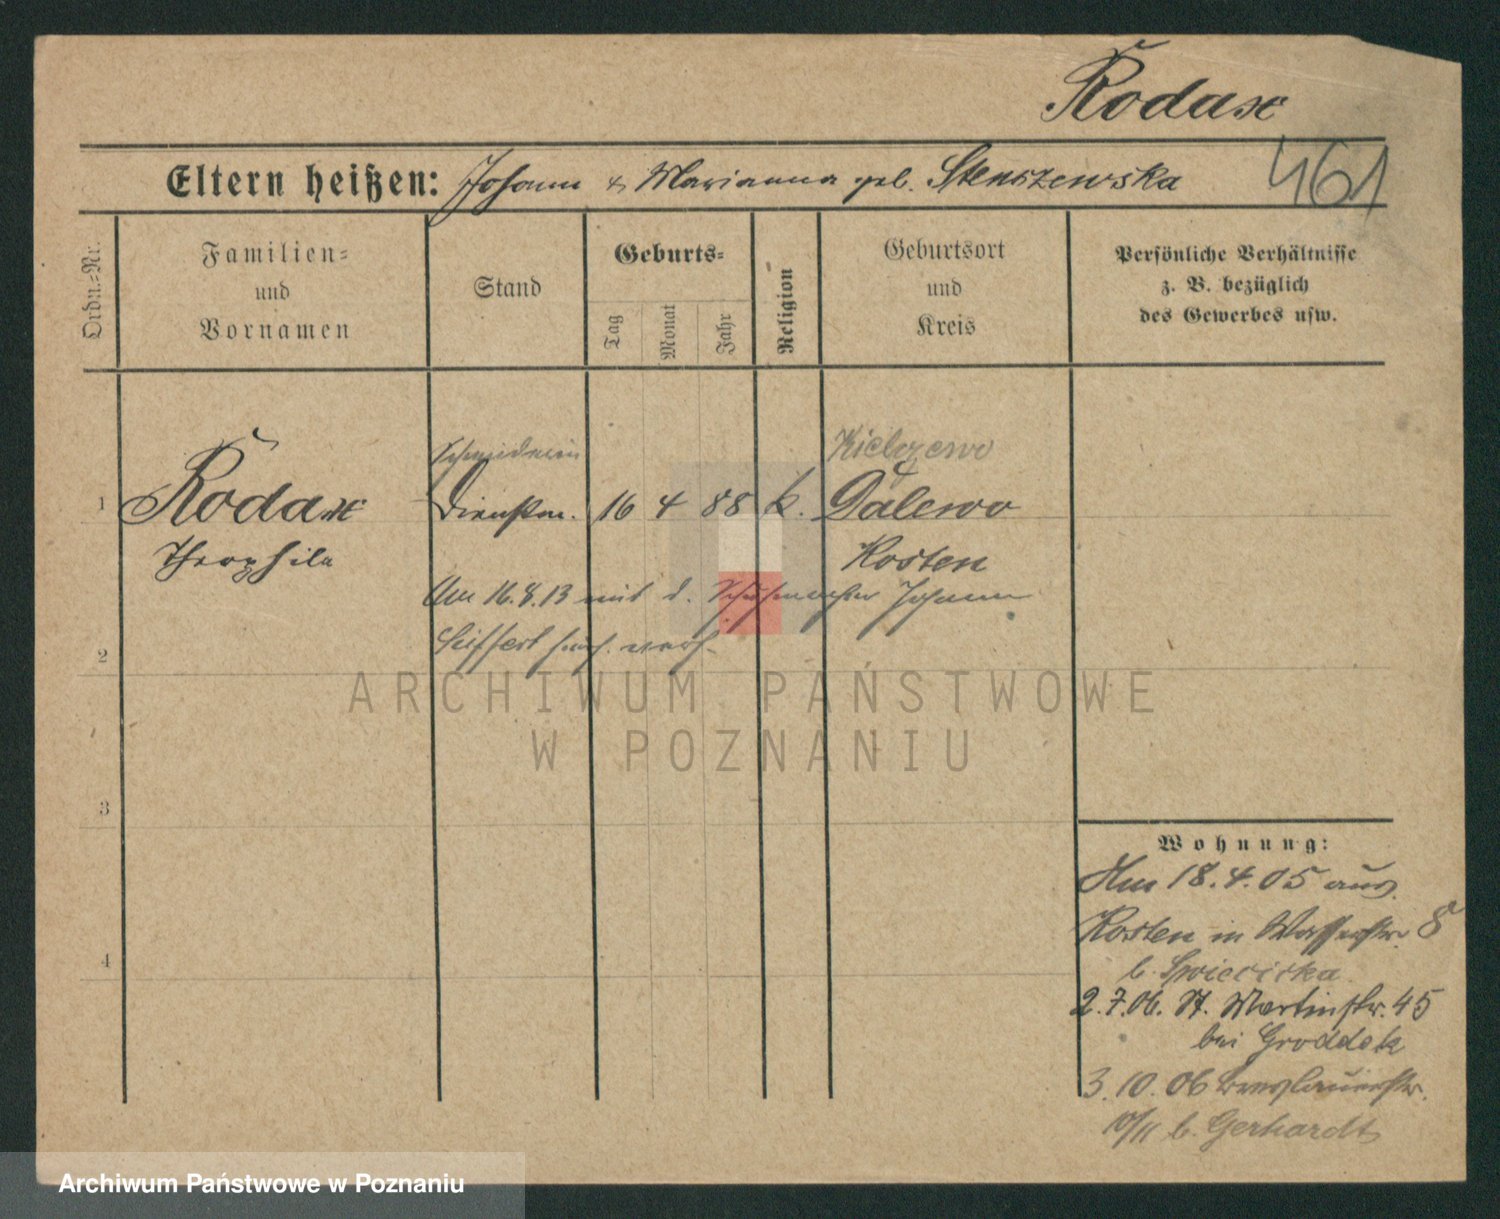 Rodax
461
Eltern heißen: Johann & Marianna geb. Stenszewska
Ordn.=Nr.
Familien=
und
Vornamen
Stand
Geburts=
Tag
Monat
Jahr
Religion
Geburtsort
und
Kreis
Persönliche Verhältnisse
z. B. bezüglich
des Gewerbes usw.
Schneiderin
Kielczewo
1 Rodax Dienstm. 16 4 88 k. Dalewo
Theophila
Kosten
Am 16.8.13 mit d. Schuhmacher Johann
Seiffert hies. verh.
2
ARCHIWUM PAŃSTWOWE
W POZNANIU
3
4
Wohnung:
Am 18.4.05 aus
Kosten in Wasserstr. 8
b.
2.7.06. St. Martinstr. 45
bei Groddek
3.10.06 Breslauerstr.
10/11 b. Gerhardt
Archiwum Państwowe w Poznaniu